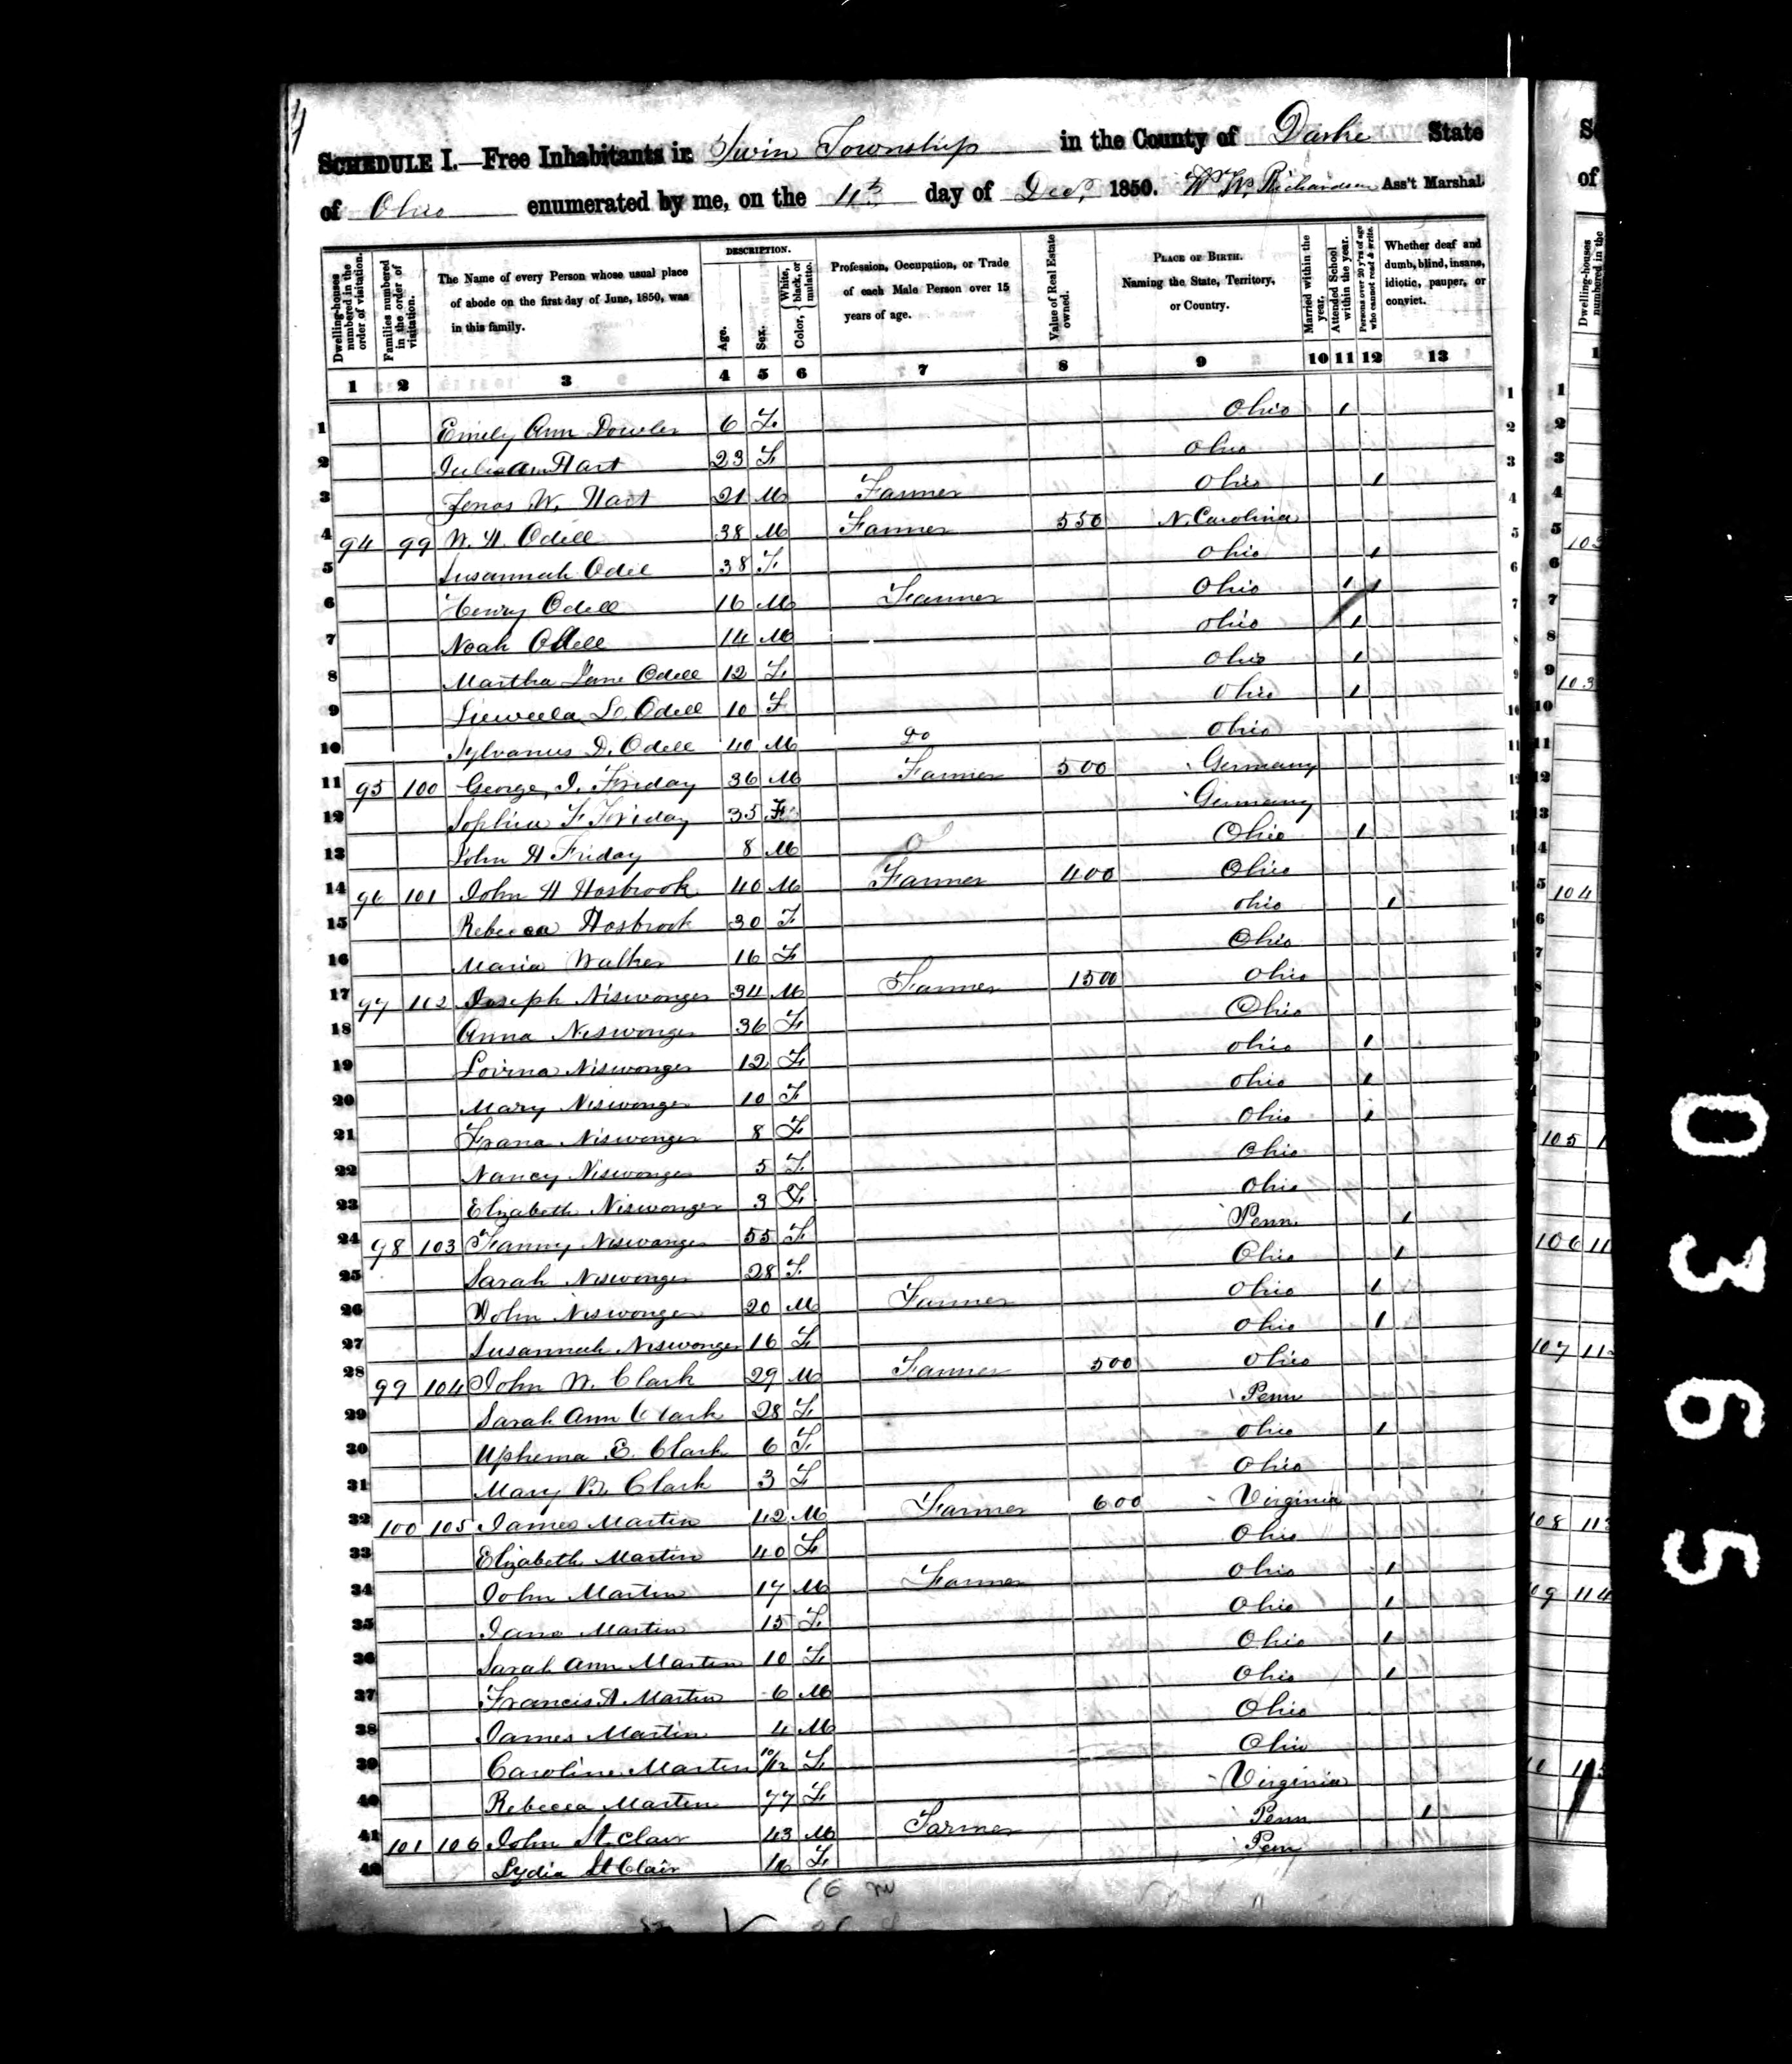 SCHEDULE I.—Free Inhabitants in Twin Township in the County of Darke State
of Ohio enumerated by me, on the 4th day of Decr, 1850. Wm W. Richardson Ass't Marshal.
Dwelling-houses numbered in the order of visitation.
Families numbered in the order of visitation.
The Name of every Person whose usual place of abode on the first day of June, 1850, was in this family.
DESCRIPTION.
Age.
Sex.
Color, { White, black, or mulatto.
Profession, Occupation, or Trade of each Male Person over 15 years of age.
Value of Real Estate owned.
PLACE OF BIRTH. Naming the State, Territory, or Country.
Married within the year.
Attended School within the year.
Persons over 20 y'rs of age who cannot read & write.
Whether deaf and dumb, blind, insane, idiotic, pauper, or convict.
1 2 3 4 5 6 7 8 9 10 11 12 13
1 Emily Ann Dowler 6 F Ohio 1
2 Julia Ann Hart 23 F Ohio
3 Zenos W. Hart 21 M Farmer Ohio 1
4 94 99 W. H. Odell 38 M Farmer 550 N. Carolina
5 Susannah Odell 38 F Ohio 1
6 Henry Odell 16 M Farmer Ohio 1 1
7 Noah Odell 14 M Ohio 1
8 Martha Jane Odell 12 F Ohio 1
9 L. Odell 10 F Ohio 1
10 Sylvanus D. Odell 40 M Do Ohio
11 95 100 George J. Friday 36 M Farmer 500 Germany
12 Sophia F Friday 35 F Germany
13 John H Friday 8 M Ohio 1
14 96 101 John H Hosbrook 40 M Farmer 400 Ohio
15 Rebecca Hosbrook 30 F Ohio 1
16 Maria Walker 16 F Ohio
17 97 102 Joseph Niswonger 34 M Farmer 1500 Ohio
18 Anna Niswonger 36 F Ohio
19 Lovina Niswonger 12 F Ohio 1
20 Mary Niswonger 10 F Ohio 1
21 Frana Niswonger 8 F Ohio 1
22 Nancy Niswonger 5 F Ohio
23 Elizabeth Niswonger 3 F Ohio
24 98 103 Fanny Niswonger 55 F Penn. 1
25 Sarah Niswonger 28 F Ohio 1
26 John Niswonger 20 M Farmer Ohio 1
27 Susannah Niswonger 16 F Ohio 1
28 99 104 John W. Clark 29 M Farmer 500 Ohio
29 Sarah Ann Clark 28 F Penn
30 Uphema E. Clark 6 F Ohio 1
31 Mary B. Clark 3 F Ohio
32 100 105 James Martin 42 M Farmer 600 Virginia
33 Elizabeth Martin 40 F Ohio
34 John Martin 17 M Farmer Ohio 1
35 Jane Martin 15 F Ohio 1
36 Sarah Ann Martin 10 F Ohio 1
37 Francis A Martin 6 M Ohio 1
38 James Martin 4 M Ohio
39 Caroline Martin 10/12 F Ohio
40 Rebecca Martin 77 F Virginia
41 101 106 John St. Clair 43 M Farmer Penn 1
42 Lydia St Clair 16 F Penn
16 m
0365